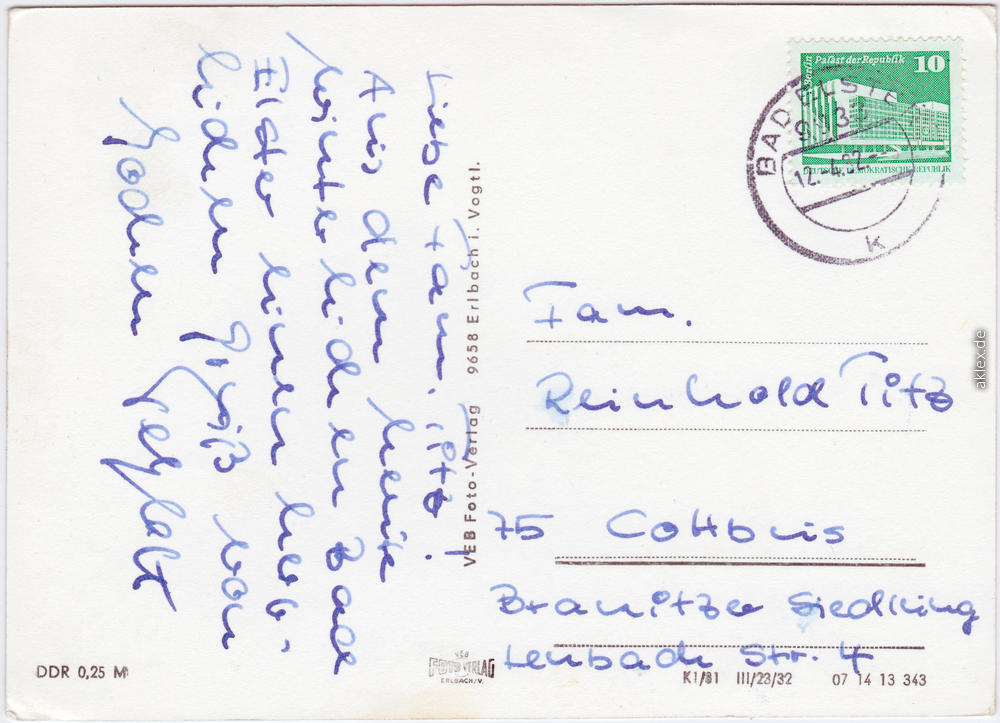 Liebe Fam. Titz!
Aus dem heute
winterlichen Bad
Elster einen herz-
lichen Gruß von
VEB Foto-Verlag 9658 Erlbach i. Vogtl.
Berlin Palast der Republik 10
DEUTSCHE DEMOKRATISCHE REPUBLIK
BAD ELSTER
9933
12.-4.82.--
k
Fam.
Reinhold Titz
75 Cottbus
Branitzer Siedlung
Lenbach Str. 4
DDR 0,25 M
VEB
FOTO VERLAG
ERLBACH/V.
K1/81 III/23/32 07 14 13 343
aklex.de